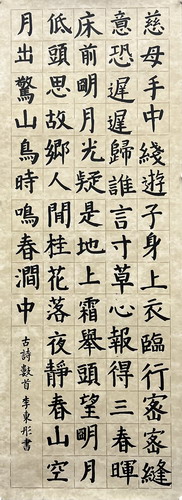 慈母手中綫遊子身上衣臨行密密縫
意恐遲遲歸誰言寸草心報得三春暉
床前明月光疑是地上霜舉頭望明月
低頭思故鄉人閒桂花落夜靜春山空
月出驚山鳥時鳴春澗中
古詩數首 李東彤書